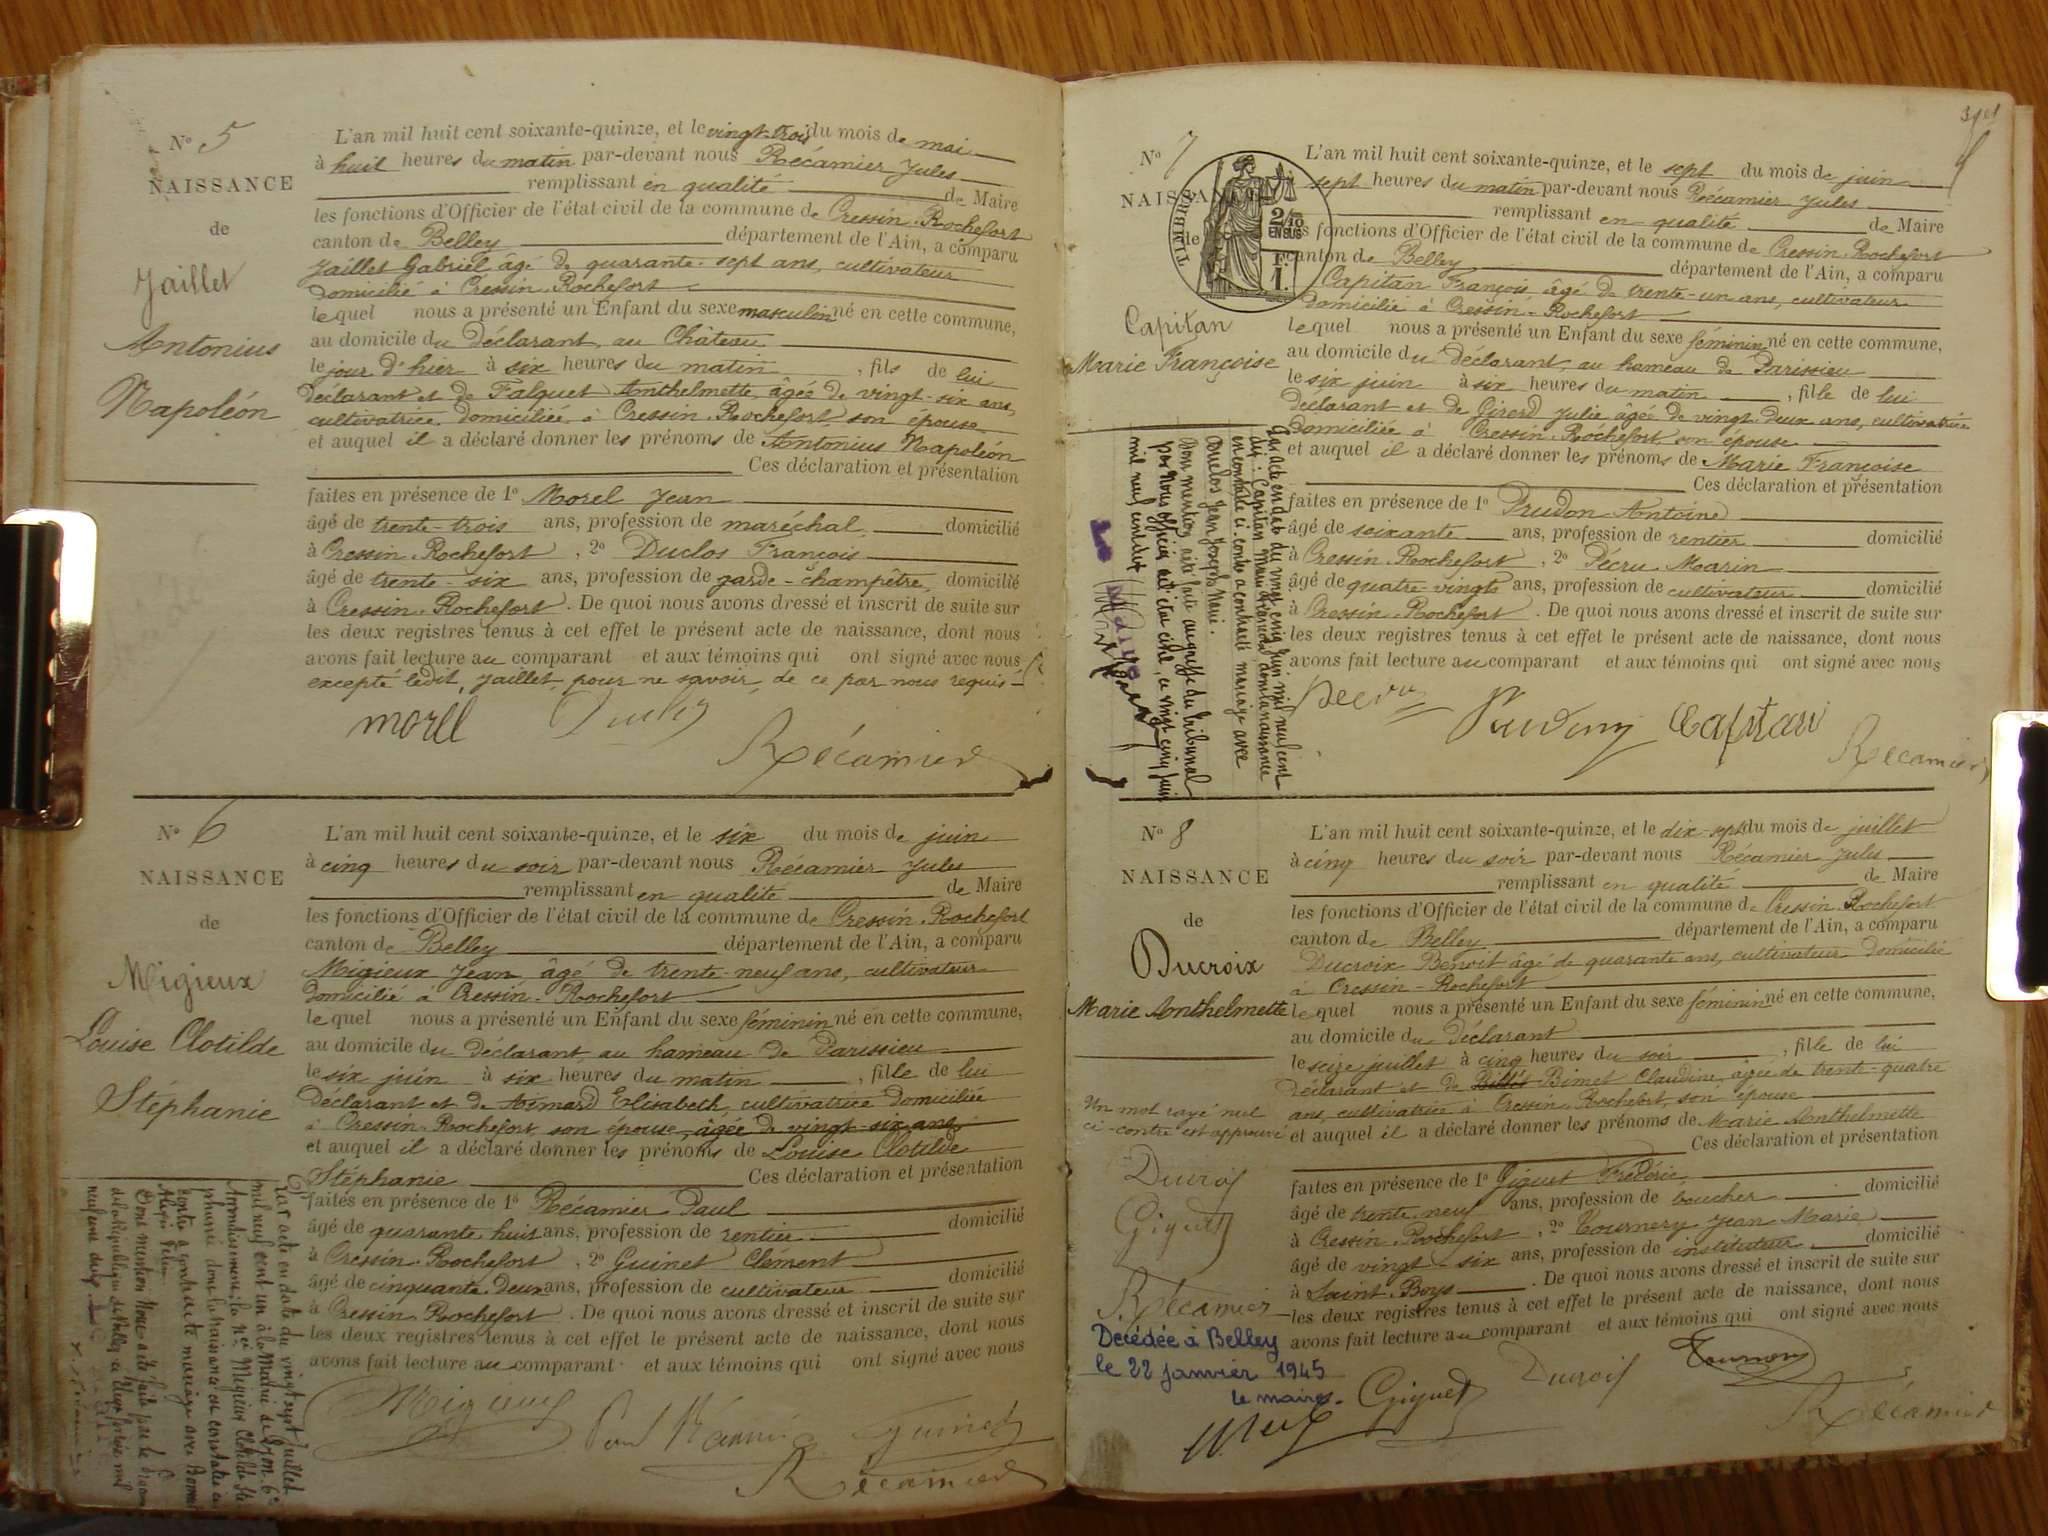 N° 5
NAISSANCE
de
Jaillet
Antonius
Napoléon
L'an mil huit cent soixante-quinze, et le vingt-trois du mois de mai
à huit heures du matin par-devant nous Récamier Jules
remplissant en qualité de Maire
les fonctions d'Officier de l'état civil de la commune de Cressin-Rochefort
canton de Belley département de l'Ain, a comparu
Jaillet Gabriel, âgé de quarante-sept ans, cultivateur
domicilié à Cressin-Rochefort
lequel nous a présenté un Enfant du sexe masculin né en cette commune,
au domicile du déclarant, au Château
le jour d'hier à six heures du matin, fils de lui
déclarant et de Falquet Anthelmette, âgée de vingt-six ans,
cultivatrice domiciliée à Cressin-Rochefort, son épouse
et auquel il a déclaré donner les prénoms de Antonius Napoléon
Ces déclaration et présentation
faites en présence de 1° Morel Jean
âgé de trente-trois ans, profession de maréchal, domicilié
à Cressin-Rochefort, 2° Duclos François
âgé de trente-six ans, profession de garde-champêtre, domicilié
à Cressin-Rochefort. De quoi nous avons dressé et inscrit de suite sur
les deux registres tenus à cet effet le présent acte de naissance, dont nous
avons fait lecture au comparant et aux témoins qui ont signé avec nous
excepté ledit Jaillet pour ne savoir, de ce par nous requis
morel Duclos
Récamier
N° 6
NAISSANCE
de
Migieux
Louise Clotilde
Stéphanie
L'an mil huit cent soixante-quinze, et le six du mois de juin
à cinq heures du soir par-devant nous Récamier Jules
remplissant en qualité de Maire
les fonctions d'Officier de l'état civil de la commune de Cressin-Rochefort
canton de Belley département de l'Ain, a comparu
Migieux Jean âgé de trente-neuf ans, cultivateur
domicilié à Cressin-Rochefort
lequel nous a présenté un Enfant du sexe féminin né en cette commune,
au domicile du déclarant, au hameau de Parissieu
le six juin à six heures du matin, fille de lui
déclarant et de Aimard Elisabeth, cultivatrice domiciliée
à Cressin-Rochefort son épouse, âgée de vingt-six ans
et auquel il a déclaré donner les prénoms de Louise Clotilde
Stéphanie Ces déclaration et présentation
faites en présence de 1° Récamier Paul
âgé de quarante-huit ans, profession de rentier domicilié
à Cressin-Rochefort, 2° Guinet Clément
âgé de cinquante-deux ans, profession de cultivateur domicilié
à Cressin-Rochefort. De quoi nous avons dressé et inscrit de suite sur
les deux registres tenus à cet effet le présent acte de naissance, dont nous
avons fait lecture au comparant et aux témoins qui ont signé avec nous
Par acte en date du vingt sept juillet
mil neuf cent un à la Mairie de Lyon 6e
Arrondissement, la Née Migieux Clotilde Sté
phanie dont la naissance est constatée ci
contre a contracté mariage avec
Dont mention
Migieux Paul Récamier Guinet
Récamier
N° 7
NAISSANCE
de
TIMBRE
2/10
EN SUS
1 F.
Capitan
Marie Françoise
L'an mil huit cent soixante-quinze, et le sept du mois de juin
sept heures du matin par-devant nous Récamier Jules
remplissant en qualité de Maire
les fonctions d'Officier de l'état civil de la commune de Cressin-Rochefort
canton de Belley département de l'Ain, a comparu
Capitan François âgé de trente-un ans, cultivateur
domicilié à Cressin-Rochefort
lequel nous a présenté un Enfant du sexe féminin né en cette commune,
au domicile du déclarant, au hameau de Parissieu
le six juin à six heures du matin, fille de lui
déclarant et de Girerd Julie âgée de vingt-deux ans, cultivatrice
domiciliée à Cressin-Rochefort son épouse
et auquel il a déclaré donner les prénoms de Marie Françoise
Ces déclaration et présentation
faites en présence de 1° Prudon Antoine
âgé de soixante ans, profession de rentier domicilié
à Cressin-Rochefort, 2° Pécru Marin
âgé de quatre-vingts ans, profession de cultivateur domicilié
à Cressin-Rochefort. De quoi nous avons dressé et inscrit de suite sur
les deux registres tenus à cet effet le présent acte de naissance, dont nous
avons fait lecture au comparant et aux témoins qui ont signé avec nous
Par acte en date du vingt cinq juin mil neuf cent
dix, Capitan Marie Françoise, dont la naissance
est constatée ci-contre a contracté mariage avec
Duclos Jean Joseph Marie.
Dont mention a été faite au greffe du tribunal
par Nous officier de l'état civil, ce vingt cinq juin
mil neuf cent dix
Le Maire
Pecru Prudon Capitan
Récamier
N° 8
NAISSANCE
de
Ducroix
Marie Anthelmette
L'an mil huit cent soixante-quinze, et le dix-sept du mois de juillet
à cinq heures du soir par-devant nous Récamier Jules
remplissant en qualité de Maire
les fonctions d'Officier de l'état civil de la commune de Cressin-Rochefort
canton de Belley département de l'Ain, a comparu
Ducroix Benoit âgé de quarante ans, cultivateur domicilié
à Cressin-Rochefort
lequel nous a présenté un Enfant du sexe féminin né en cette commune,
au domicile du déclarant
le seize juillet à cinq heures du soir, fille de lui
déclarant et de Bimet Claudine, âgée de trente-quatre
ans, cultivatrice à Cressin-Rochefort, son épouse
et auquel il a déclaré donner les prénoms de Marie Anthelmette
Ces déclaration et présentation
faites en présence de 1° Giguet Frédéric
âgé de trente-neuf ans, profession de boucher domicilié
à Cressin-Rochefort, 2° Tournery Jean Marie
âgé de vingt-six ans, profession de instituteur domicilié
à Saint-Boys. De quoi nous avons dressé et inscrit de suite sur
les deux registres tenus à cet effet le présent acte de naissance, dont nous
avons fait lecture au comparant et aux témoins qui ont signé avec nous
Un mot rayé nul
ci-contre est approuvé
Ducroix
Giguet
Récamier
Décédée à Belley
le 22 janvier 1945
le maire
Giguet Ducroix Tournery
Récamier